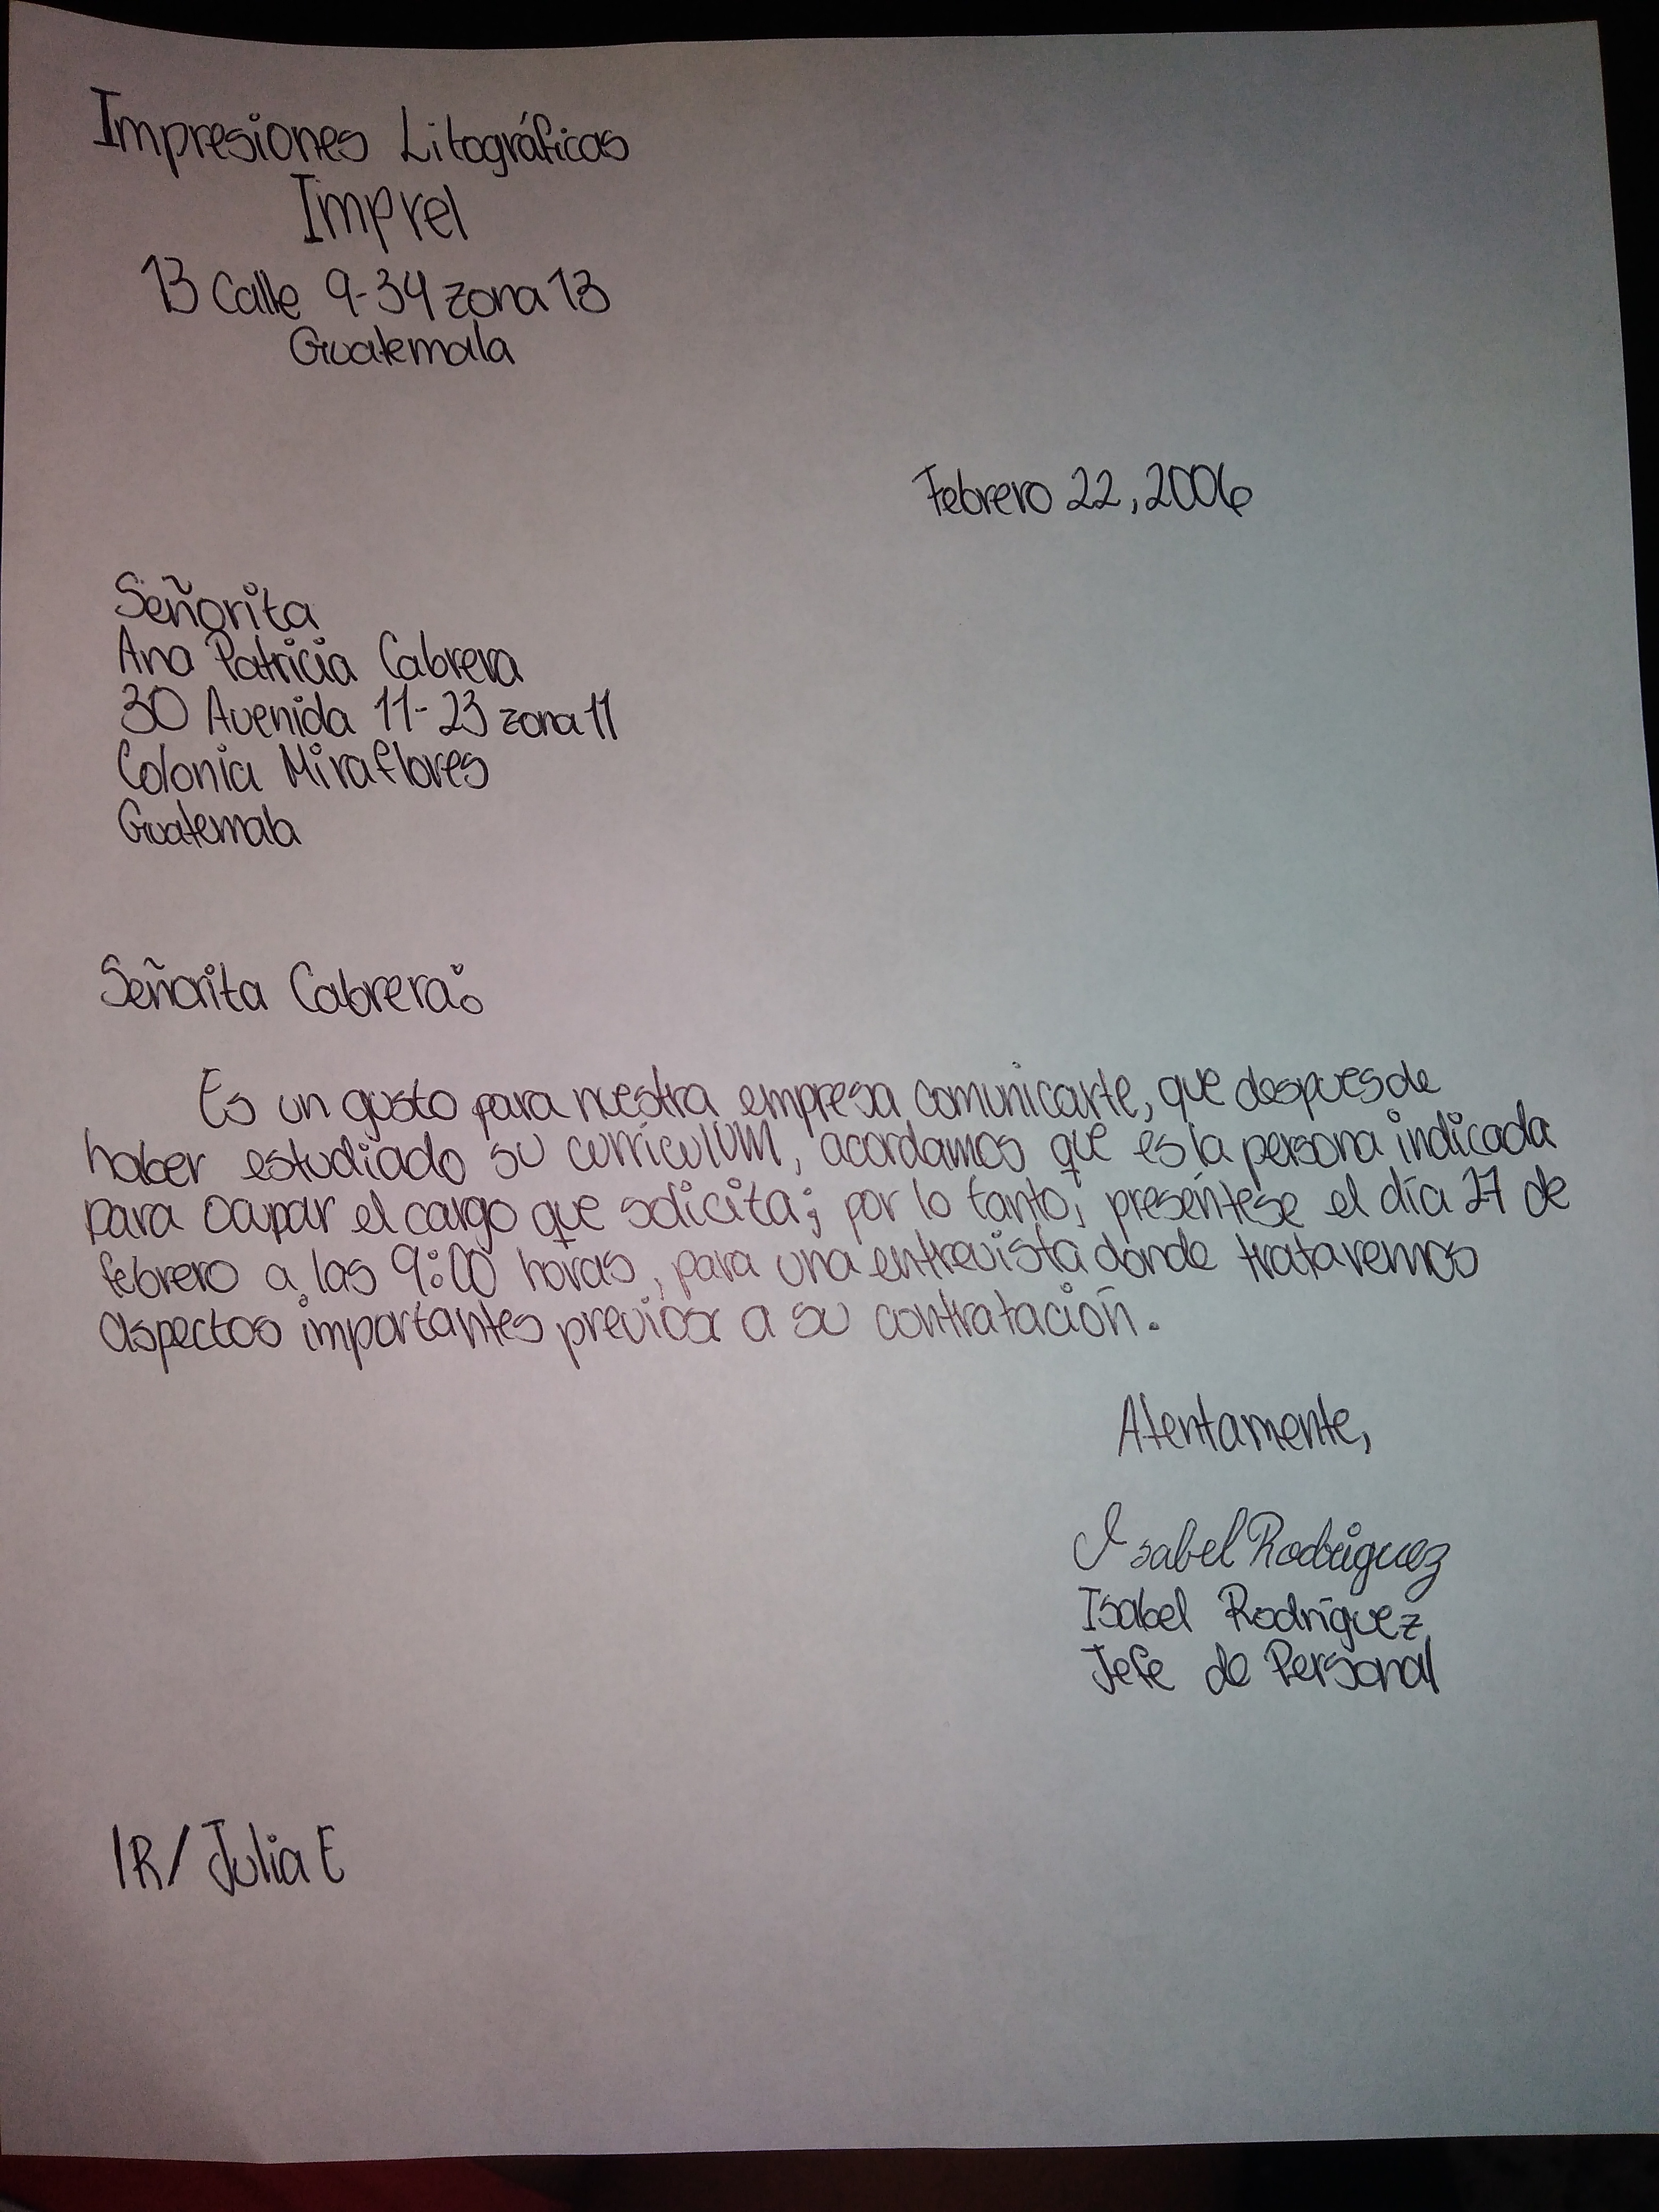 Impresiones Litográficas
Imprel
13 Calle 9-34 zona 13
Guatemala
Febrero 22, 2006
Señorita
Ana Patricia Cabrera
30 Avenida 11-23 zona 11
Colonia Miraflores
Guatemala
Señorita Cabrera:
Es un gusto para nuestra empresa comunicarte, que despues de
haber estudiado su currículum, acordamos que es la persona indicada
para ocupar el cargo que solicita; por lo tanto, preséntese el día 27 de
febrero a las 9:00 horas, para una entrevista donde trataremos
aspectos importantes previos a su contratación.
Atentamente,
Isabel Rodríguez
Isabel Rodríguez
Jefe de Personal
IR/Julia E